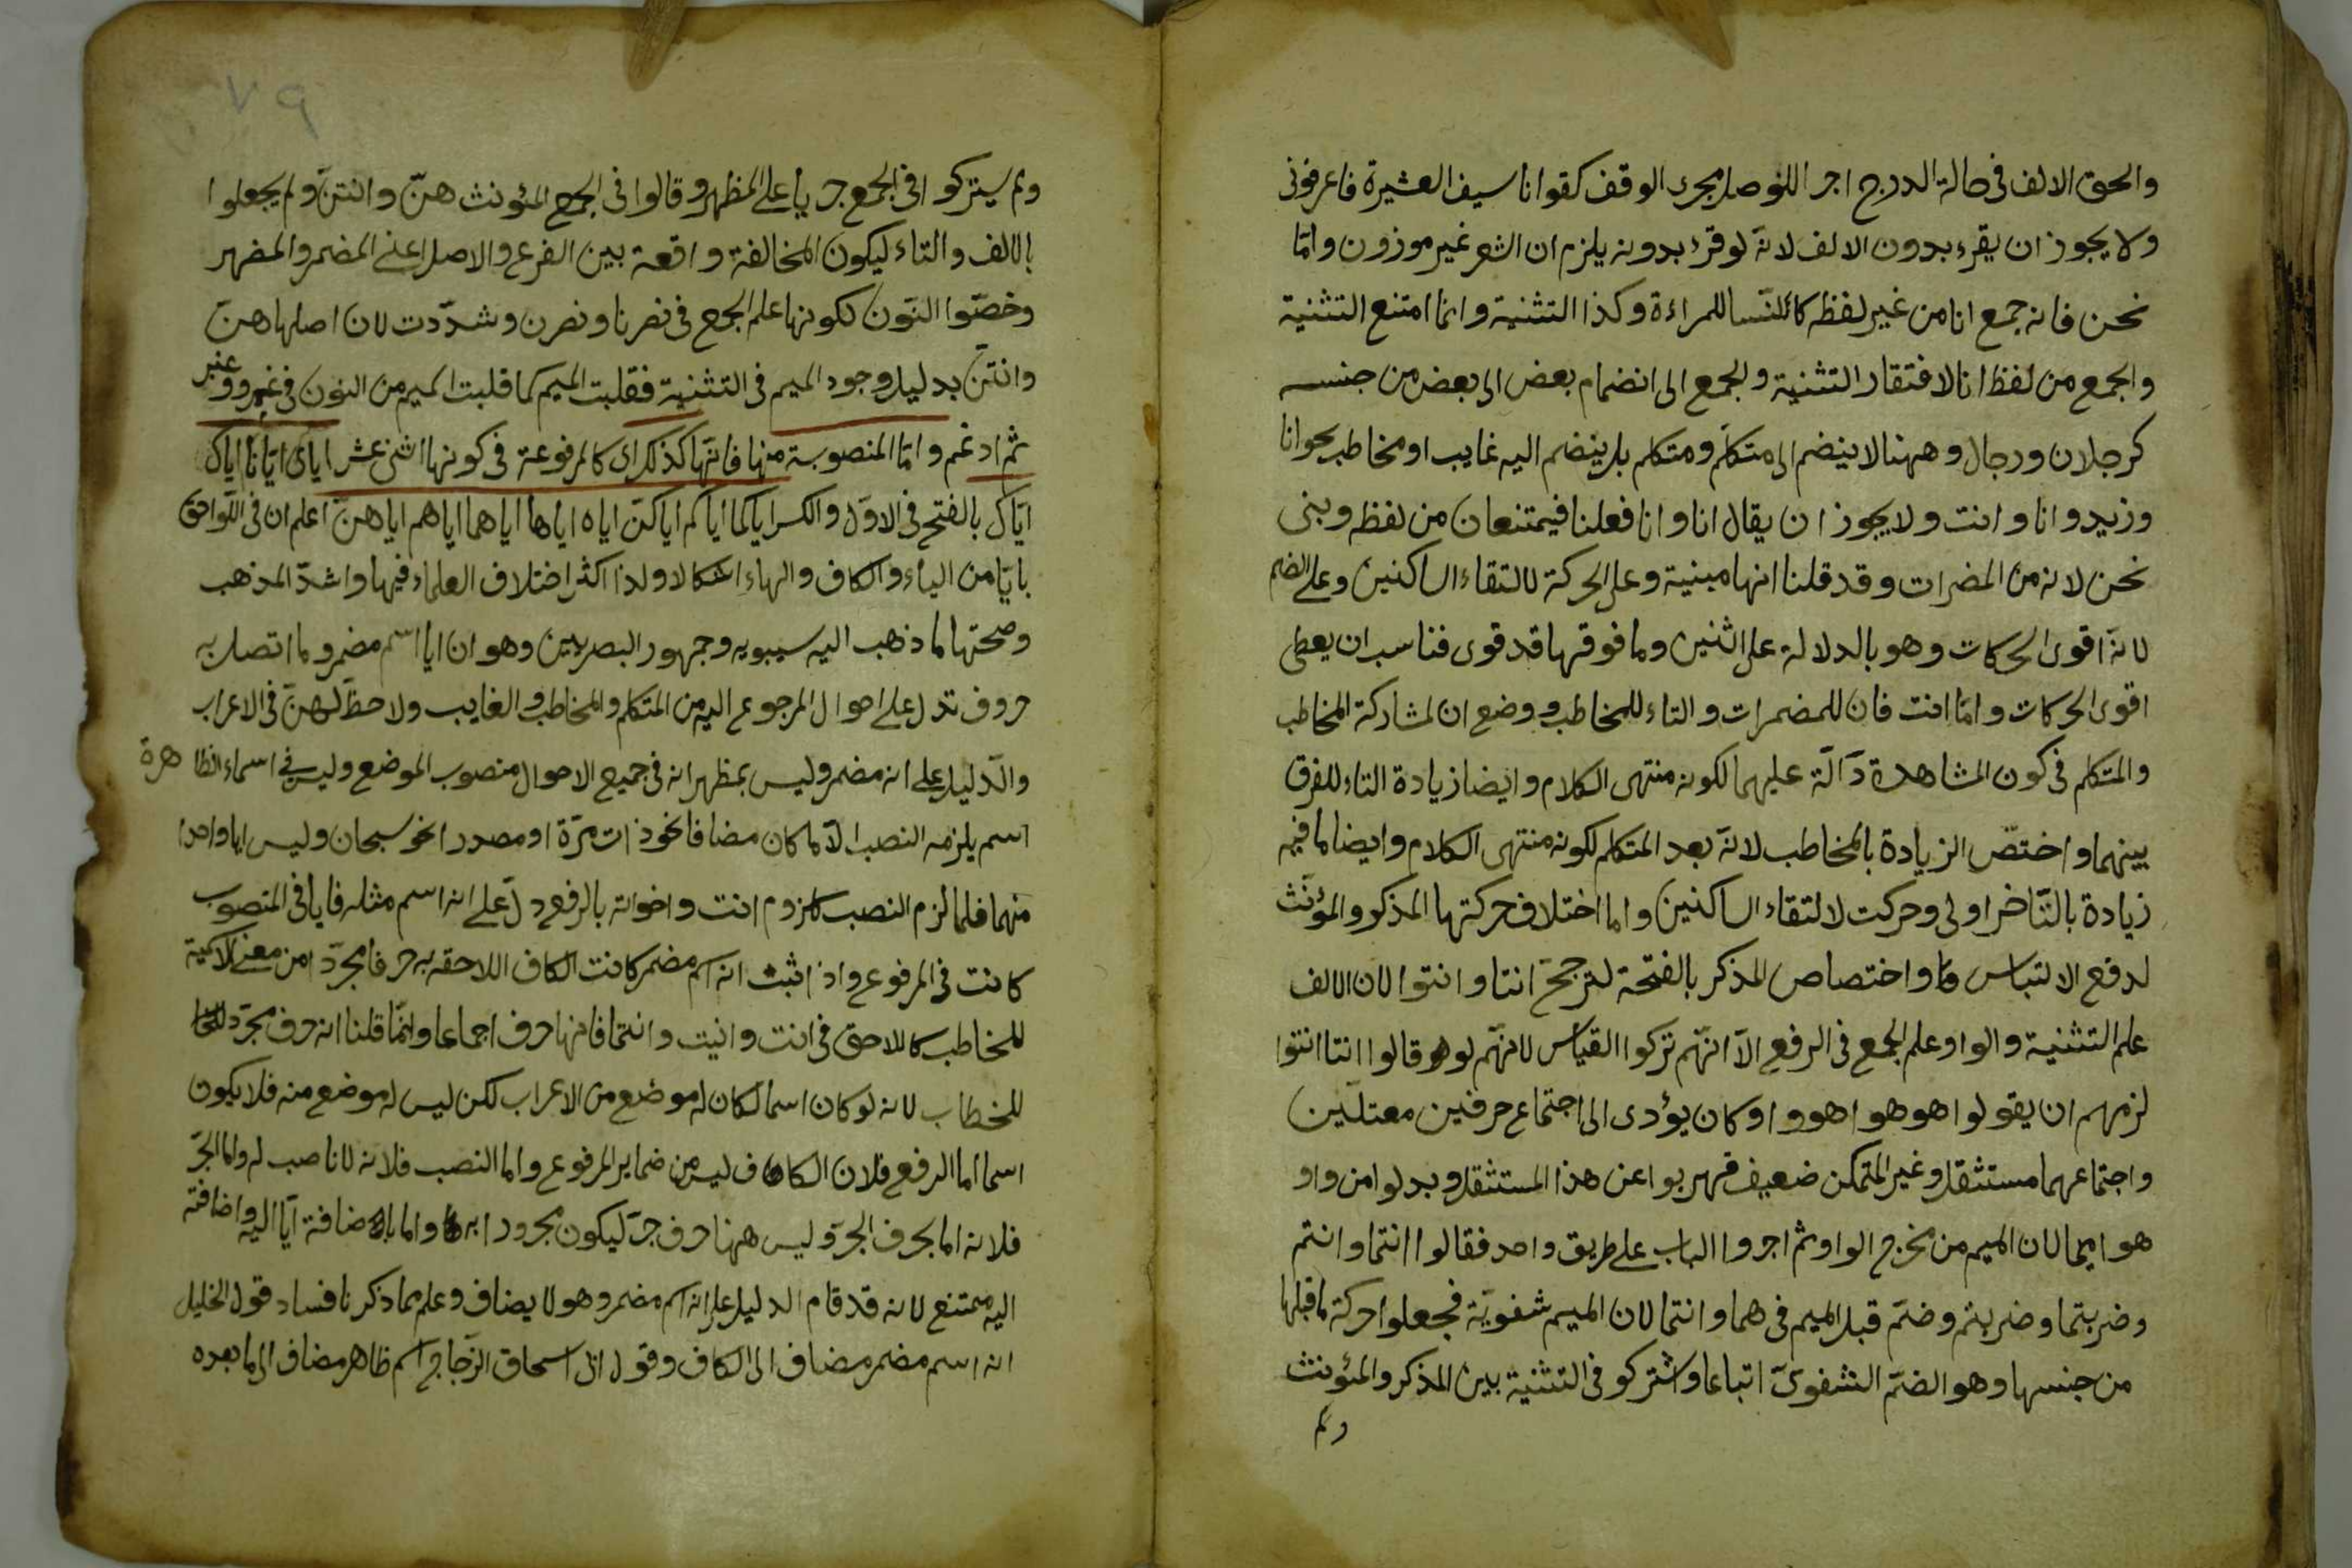 والحق الالف فى حالة الدرج اجرا للوصل مجرى الوقف كقوا انا سيف العشيرة فاعرفونى
ولا يجوز ان يقرء بدون الالف لانّه لو قرء بدونه يلزم ان الشعر غير موزون وامّا
نحن فانه جمع انا من غير لفظه كالنّسا للمراءة وكذا التثنية وانما امتنع التثنية
والجمع من لفظ انا لافتقار التثنية والجمع الى انضمام بعض الى بعض من جنسه
كرجلان ورجال وههنا لا ينضم الى متكلّم ومتكلم بل ينضم اليه غايب او مخاطب نحو انا
وزيد وانا وانت ولا يجوز ان يقال انا وانا فعلنا فيمتنعان من لفظه وبنى
نحن لانه من المضمرات وقد قلنا انها مبنية وعلى الحركة لالتقاء الساكنين وعلى الضم
لانّه اقوى الحركات وهو بالدلالة على اثنين وما فوقها قد قوى فناسب ان يعطى
اقوى الحركات وامّا انت فان للمضمرات والتاء للمخاطب ووضع ان لمشاركة المخاطب
والمتكلم فى كون المشاهدة دآلّة عليهما لكونه منتهى الكلام وايضا زيادة التاء للفرق
بينهما واختصّ الزيادة بالمخاطب لانّه بعد المتكلم لكونه منتهى الكلام وايضا لما فيه
زيادة بالتّاخر اولى وحركت لالتقاء الساكنين واما اختلاف حركتها المذكر والمؤنّث
لدفع الالتباس واختصاص المذكر بالفتحة لترجح انتا وانتوا لان الالف
علم التثنية والواو علم الجمع فى الرفع الّا انّهم تركوا القياس لانهّم لو قالوا انتا انتوا
لزمهم ان يقولوا هو هوا هووا وكان يؤدى الى اجتماع حرفين معتلّين
واجتماعهما مستثقل وغير المتمكن ضعيف فهربوا عن هذا المستثقل وبدلوا من واو
هو ايما لان الميم من مخرج الواو ثم اجروا الباب على طريق واحد فقالوا انتما وانتم
وضربتما وضربتم وضمّ قبل الميم فى هما وانتما لان الميم شفويّة فجعلوا حركة ما قبلها
من جنسها وهو الضمّ الشفوىّ اتباعا واشتركو فى التثنية بين المذكر والمئونث
ولم
ولم يشتركوا فى الجمع جريا على المظهر وقالوا فى الجمع المئونث هنّ وانتنّ ولم يجعلوا
بالالف والتاء ليكون المخالفة واقعة بين الفرع والاصل اعنى المضمر والمضهر
وخصّوا النّون لكونها علم الجمع فى نصرنا ونصرن وشدّدت لان اصلها هنّ
وانتنّ بدليل وجود الميم فى التثنية فقلبت الميم كما قلبت الميم من النون فى عنبر
ثم ادغم وامّا المنصوبة منها فانّها كذلك اى كالمرفوعة فى كونها اثنى عشر اياى ايّانا ايّاك
ايّاك بالفتح فى الاوّل والكسر اياكما اياكم اياكنّ اياه اياها اياهما اياهم اياهنّ اعلم ان فى اللّواحق
بايّا من الياء والكاف والهاء اشكالا ولذا اكثر اختلاف العلماء فيها واشدّ المذهب
وصحتها ما ذهب اليه سيبويه وجمهور البصريين وهو ان ايا اسم مضمر وما اتصل به
حروف تدل على احوال المرجوع اليه من المتكلم والمخاطب والغايب ولا حظّ لهنّ فى الاعراب
والدّليل على انه مضمر وليس بمظهر انه فى جميع الاحوال منصوب الموضع وليس فى اسماء الظاهرة
اسم يلزمه النصب الّا ما كان مضافا نحو ذات مرّة او مصدرا نحو سبحان وليس ايا واحدا
منهما فلما لزم النصب كلزوم انت واخواته بالرفع دلّ على انه اسم مثله فايا فى المنصوب
كانت فى المرفوع واذا ثبت انه اسم مضمر كانت الكاف اللاحقه به حرفا مجرّدا من معنى الاسمية
للمخاطب كاللاحق فى انت وانت وانتما فانها حرف اجماعا وانّما قلنا انه حرف مجرّد
للخطاب لانه لو كان اسما لكان له موضع من الاعراب لكن ليس له موضع منه فلا يكون
اسما اما الرفع فلان الكاف ليس من ضماير المرفوع واما النصب فلانه لا ناصب له واما الجرّ
فلانه اما بحرف الجرّ وليس ههنا حرف جرّ ليكون مجرورا به واما باضافة ايّا اليه واضافته
اليه ممتنع لانه قد قام الدليل على انه اسم مضمر وهو لا يضاف وعلم مما ذكرنا فساد قول الخليل
انه اسم مضمر مضاف الى الكاف وقول ابى اسحاق الزّجاج اسم ظاهر مضاف الى ما بعده